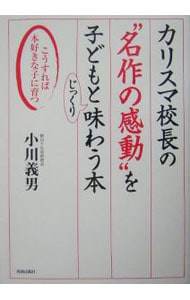 カリスマ校長の
"名作の感動"を
子どもと
じっくり
味わう本
こうすれば
本好きな子に育つ
小川義男